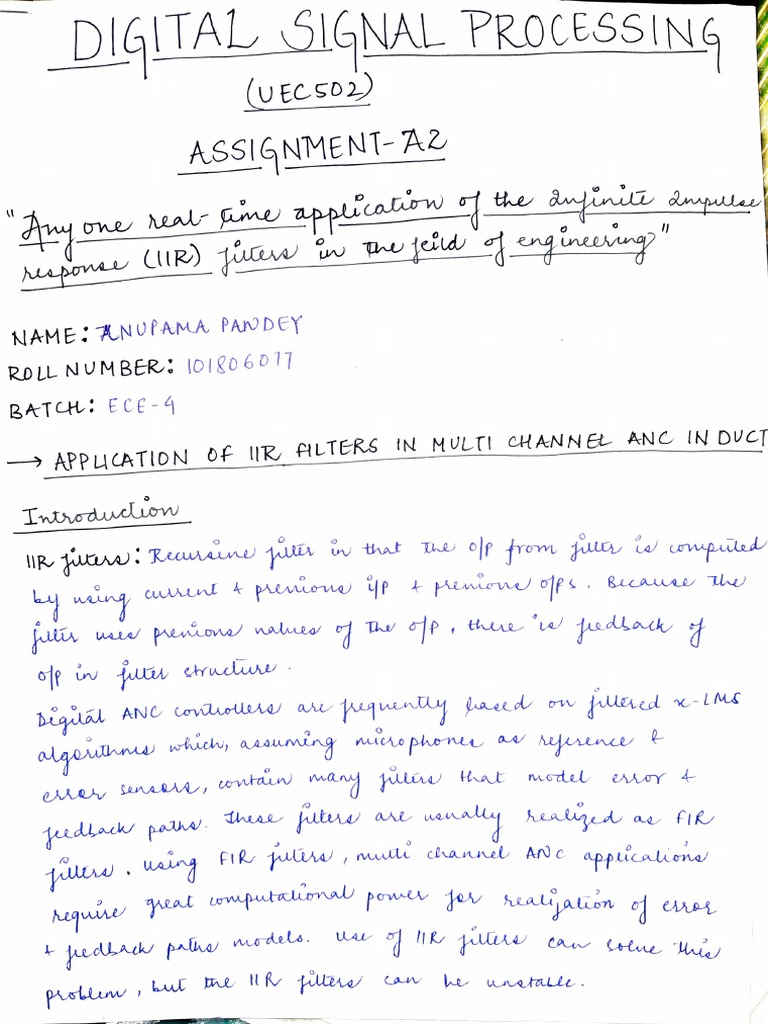 DIGITAL SIGNAL PROCESSING
(UEC502)
ASSIGNMENT-A2
"Any one real-time application of the Infinite Impulse
response (IIR) filters in the feild of engineering"
NAME: ANUPAMA PANDEY
ROLL NUMBER: 101806077
BATCH: ECE-4
→ APPLICATION OF IIR FILTERS IN MULTI CHANNEL ANC IN DUCT
Introduction
IIR filters: Recursive filter in that the o/p from filter is computed
by using current + previous i/p + previous o/ps. Because the
filter uses previous values of the o/p, there is feedback of
o/p in filter structure.
Digital ANC controllers are frequently based on filtered x-LMS
algorithms which, assuming microphones as reference &
error sensors, contain many filters that model error +
feedback paths. These filters are usually realized as FIR
filters. Using FIR filters, multi channel ANC applications
require great computational power for realization of error
+ feedback paths models. Use of IIR filters can solve this
problem, but the IIR filters can be unstable.